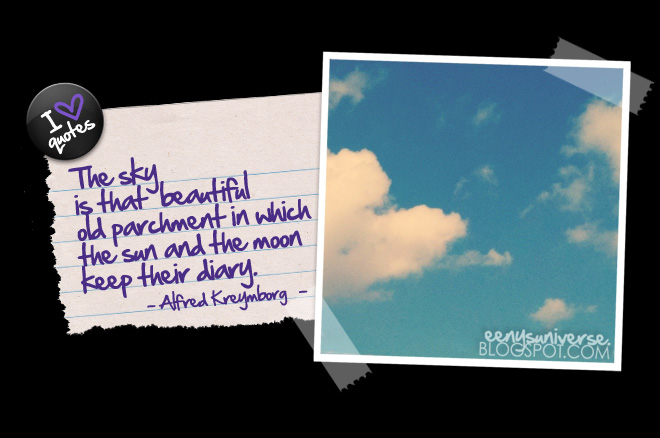 I
quotes
The sky
is that beautiful
old parchment in which
the sun and the moon
keep their diary.
- Alfred Kreymborg -
eenysuniverse.
BLOGSPOT.COM